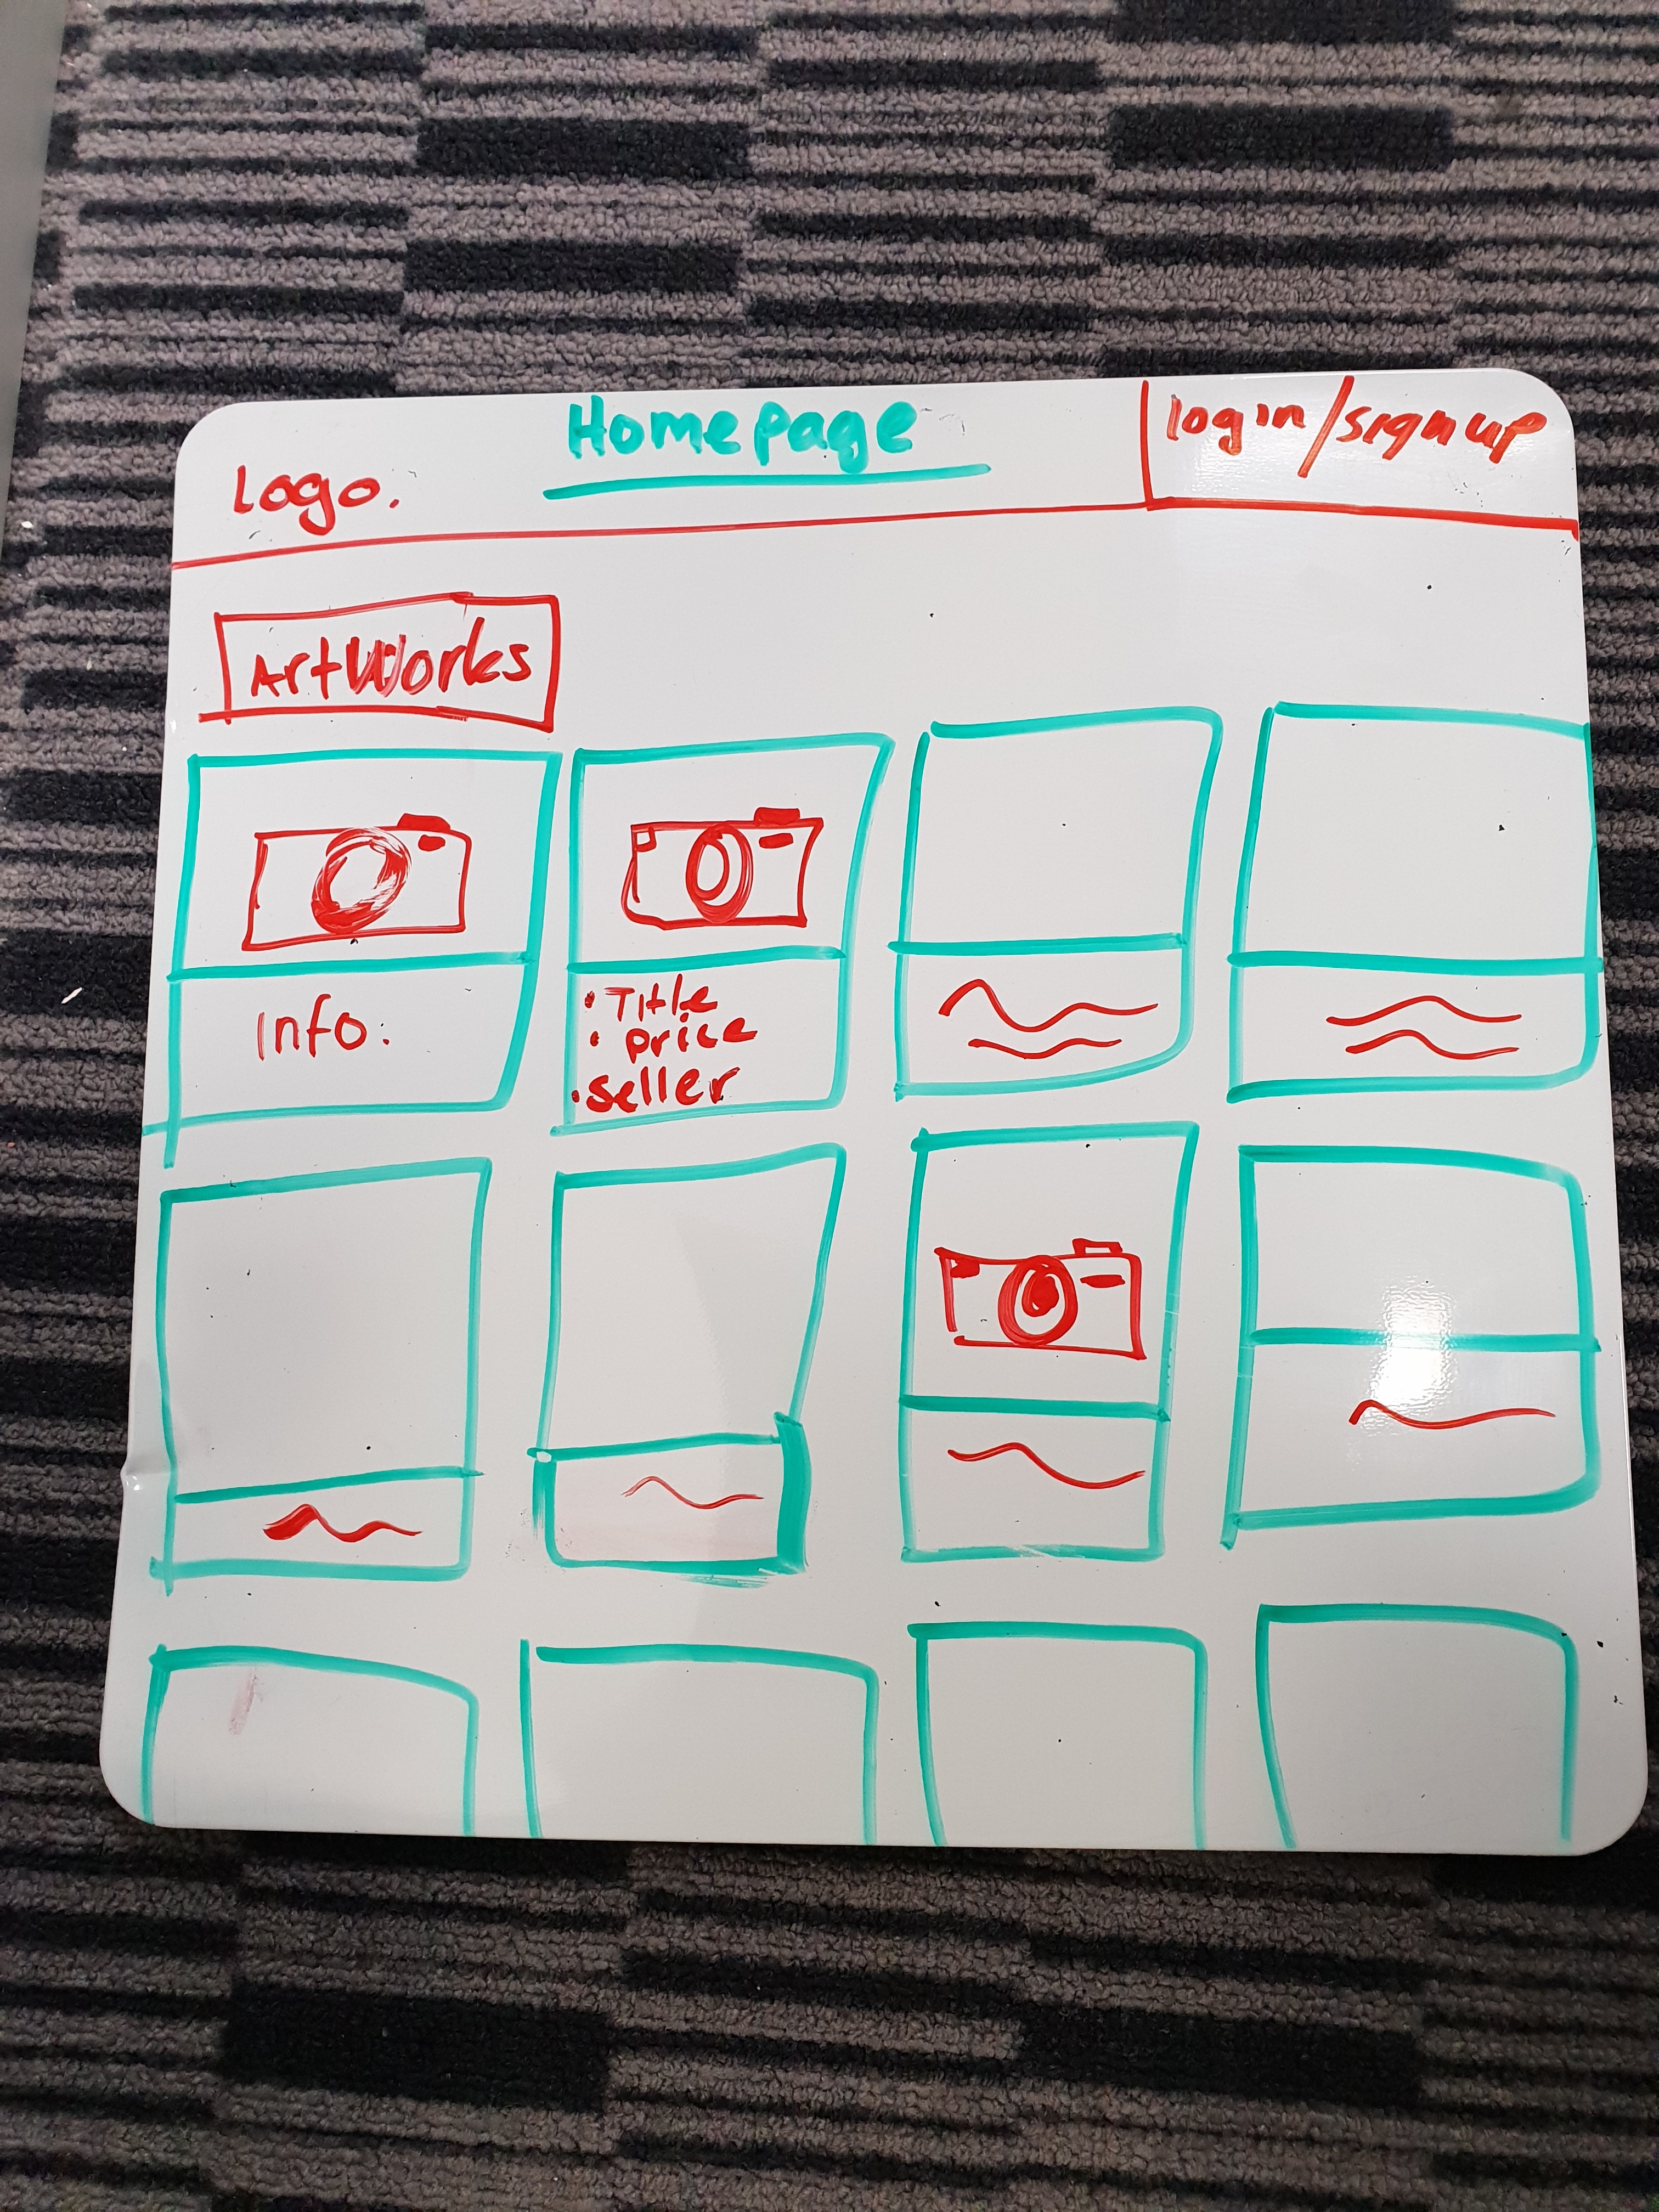 Homepage
login/signup
Logo.
ArtWorks
Info.
• Title
• price
• seller